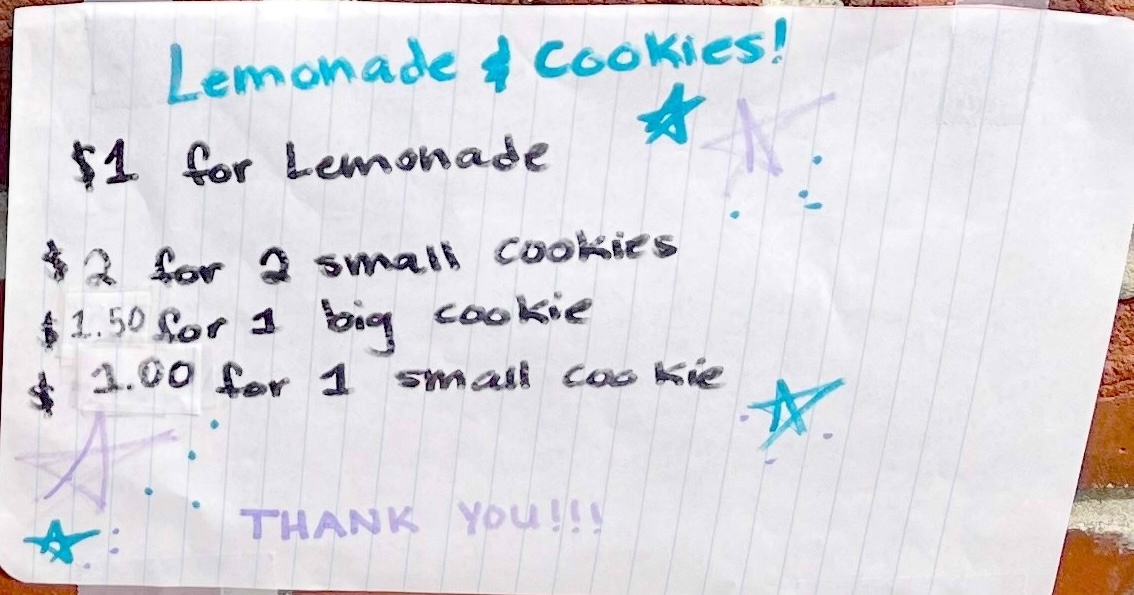 Lemonade & Cookies!
$1 for Lemonade
$2 for 2 small cookies
$1.50 for 1 big cookie
$1.00 for 1 small cookie
THANK YOU!!!